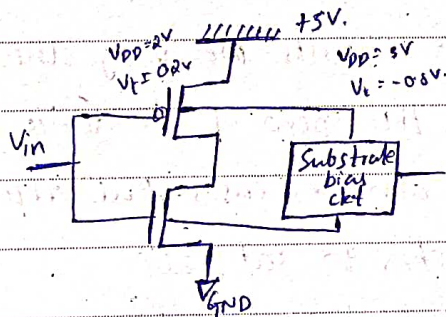 +5V.
VDD=2V
Vt=0.2V
VDD=5V
Vt=-0.8V.
Vin
Substrate
bias
ckt
GND